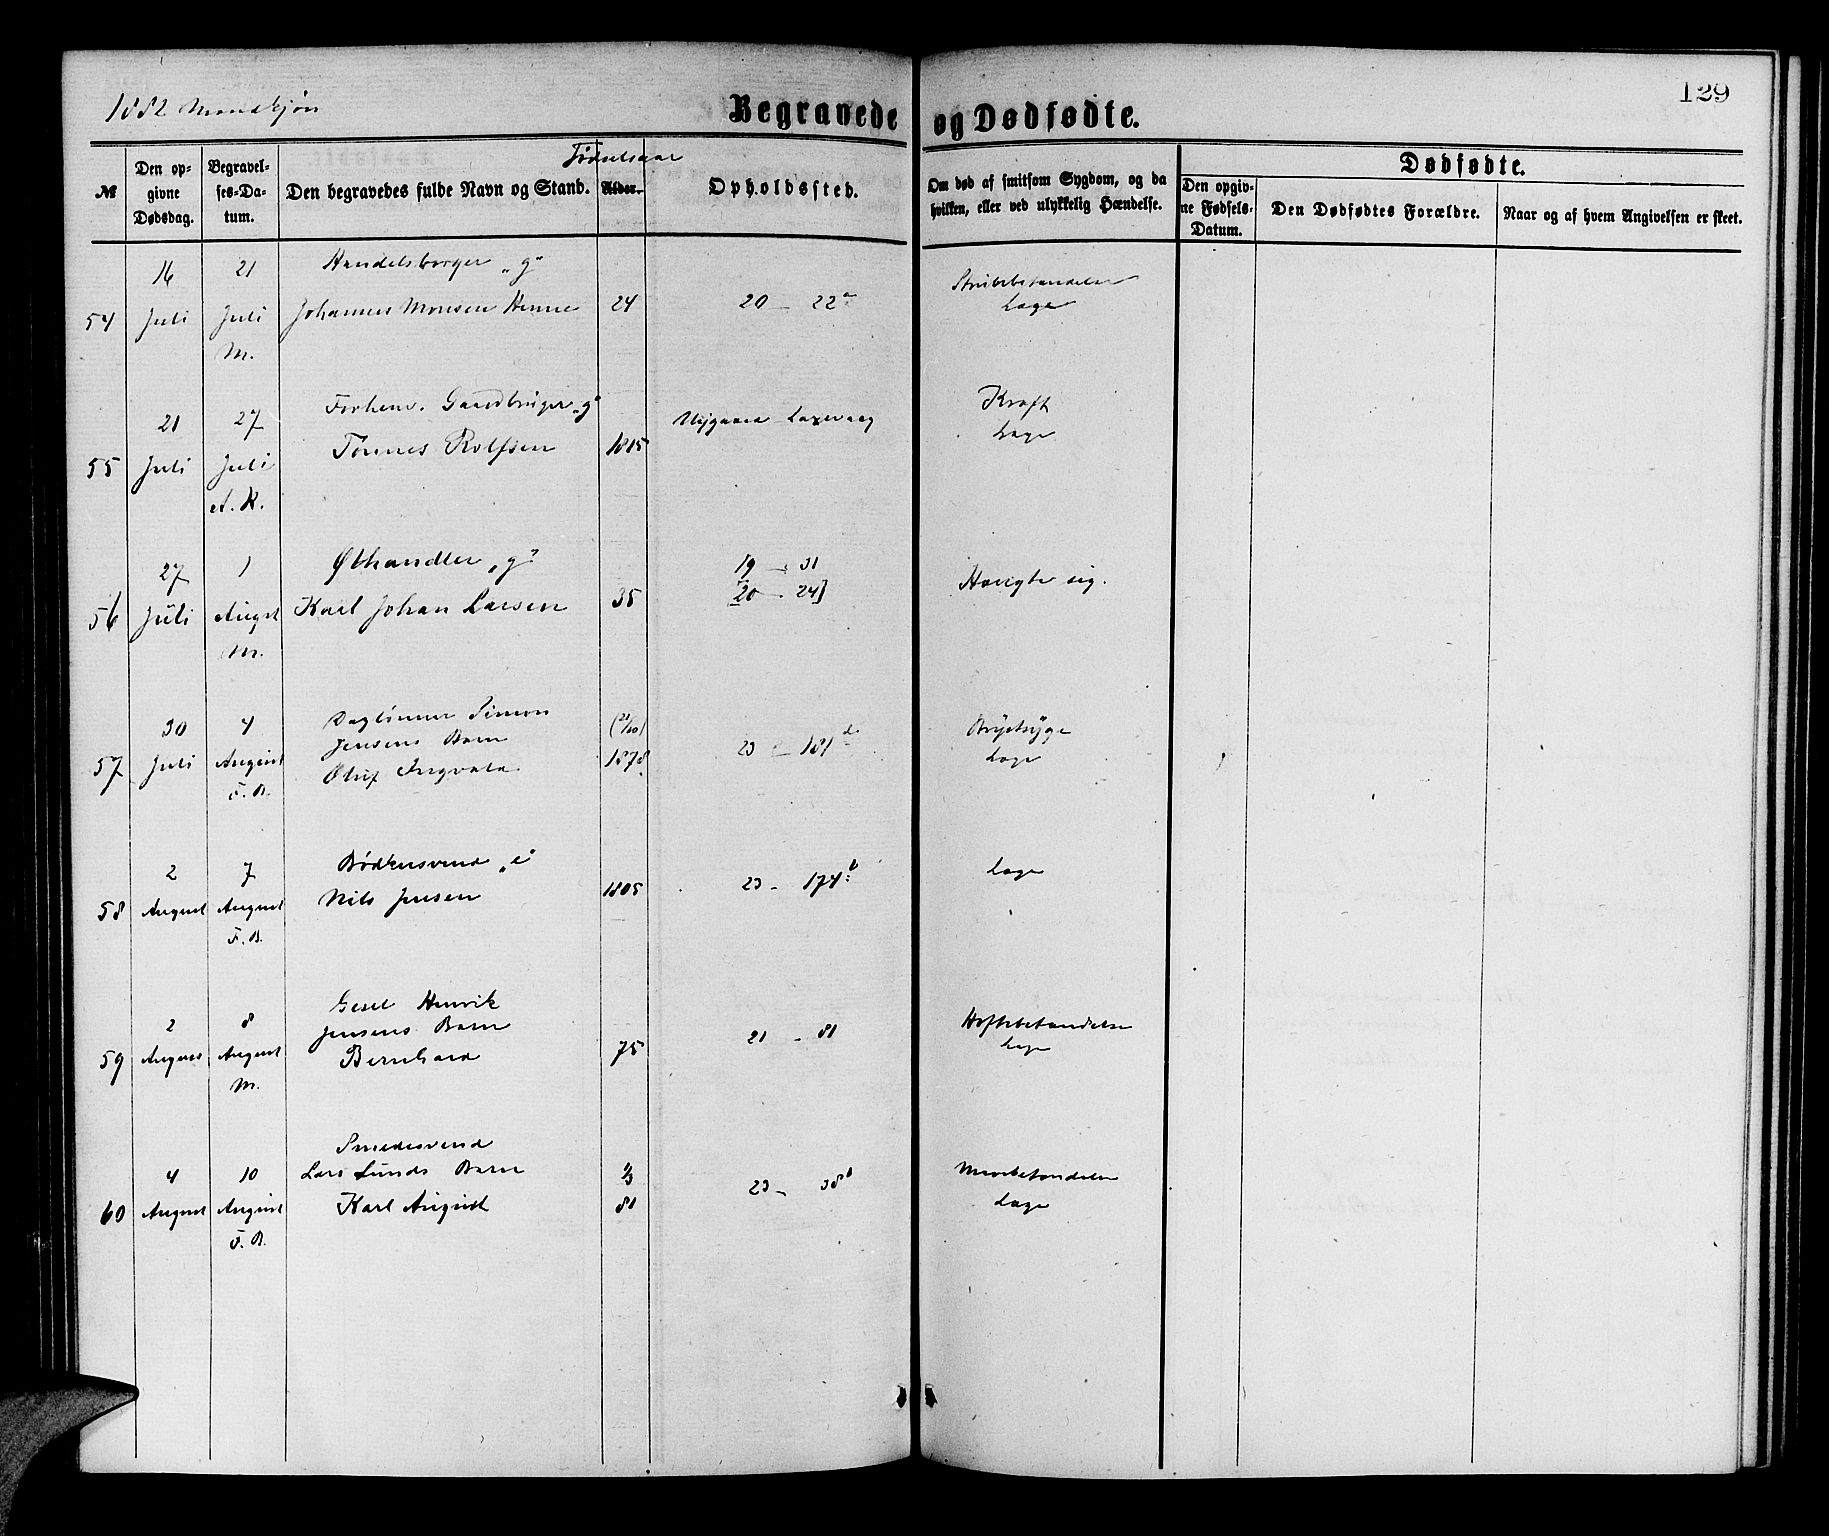 1882 Mandkjøn
Begravede og Dødfødte.
129
№
Den opgivne Dødsdag.
Begravelses-Datum.
Den begravedes fulde Navn og Stand.
Fødselsaar
Alder.
Opholdssted.
Om død af smitsom Sygdom, og da hvilken, eller ved ulykkelig Hændelse.
Dødfødte.
Den opgivne Fødsels-Datum.
Den Dødfødtes Forældre.
Naar og af hvem Angivelsen er skeet.
16 21 Handelsborger „g"
54 Juli Juli Johannes Monsen 24 20 - 22a
M.
Læge
21 27 Forhenv. Gaardbruger „g"
55 Juli Juli Tønnes Rolfsen 1815 Nygaard Laxevaag
A. K.
Kræft
Læge
27 1 Ølhandler „g"
56 Juli August Karl Johan Larsen 35
M.
19 - 31
[20 - 24]
Hængte sig.
30 4 Daglønner Simon (21/10)
57 Juli August Jensens Barn 1878 23 - 181d
F. B. Oluf Ingvald
Brystsyge
Læge
2 7 Bødkersvend „e"
58 August August Nils Jensen 1805 23 - 174b
F. B.
Læge
2 8 Gesel Henrik
Jensens Barn
59 August August Bernhard 75 21 - 81
M.
Hoftebetændelse
Læge
4 10 Smedesvend
Lars Lunds Barn
60 August August Karl August 81 23 - 38b
F. B.
Læge